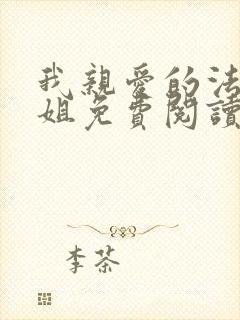 我親愛的法
姐免費閱讀
李茶